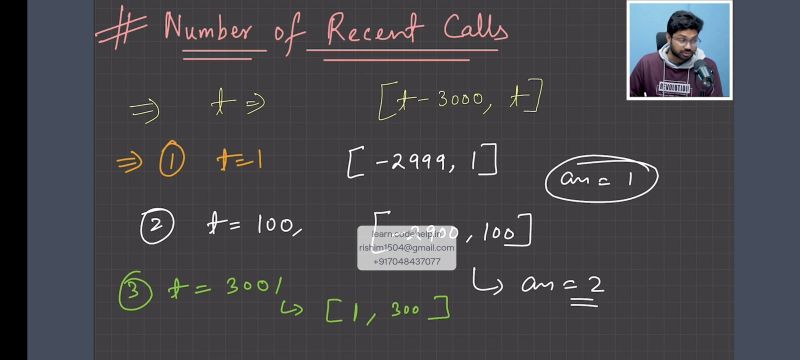 # Number of Recent Calls
⇒ t ⇒ [t-3000, t]
⇒ ① t=1 [-2999, 1]
an = 1
② t = 100, [-2900, 100]
learn.codehelp.in
rishim1504@gmail.com
+917048437077
↳ an = 2
③ t = 3001
↳ [1, 300]
REVOLUTION